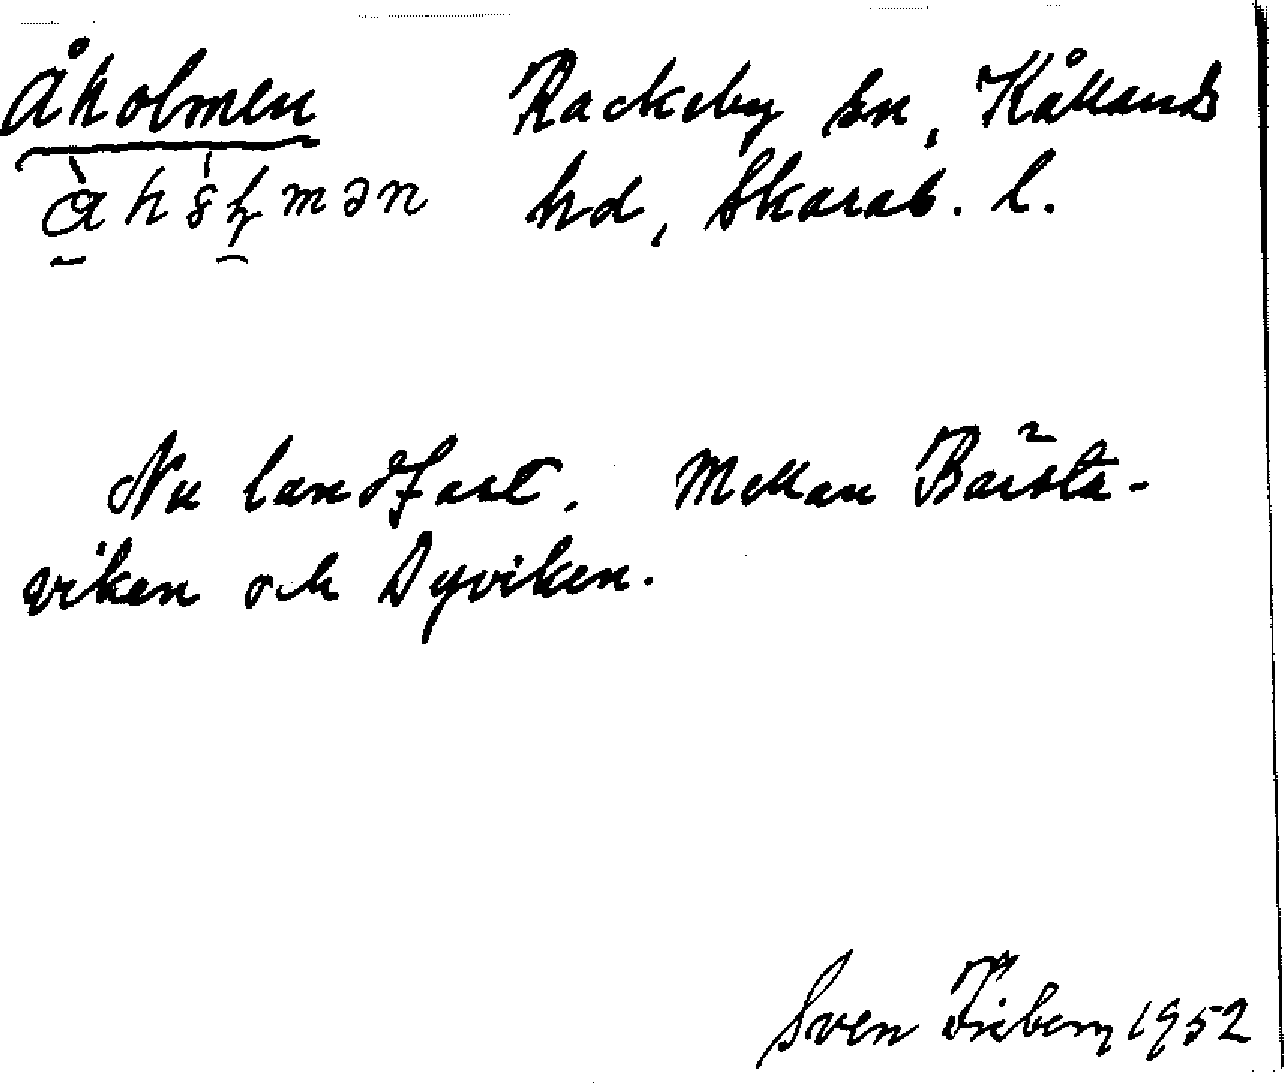 Åholmen Rackeby sn, Kållands
hd, Skarab. l.
Nu landfast. Mellan Båsta-
viken och Dyviken.
Sven Friberg 1952